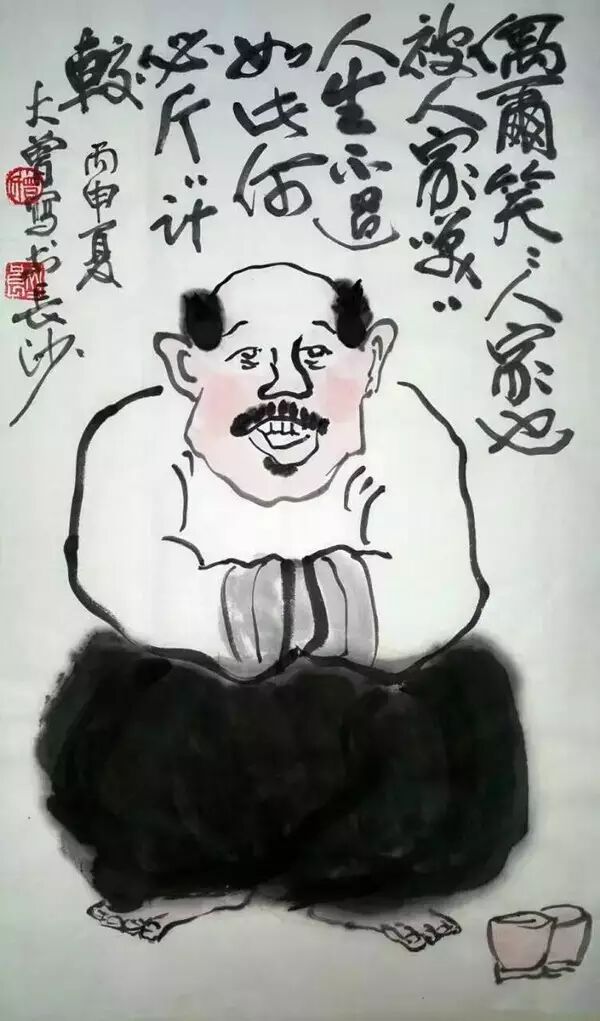 偶爾笑〻人家也
被人家咲〻
人生不過
如此何
必斤〻計
較
丙申夏
大曾寫於長沙